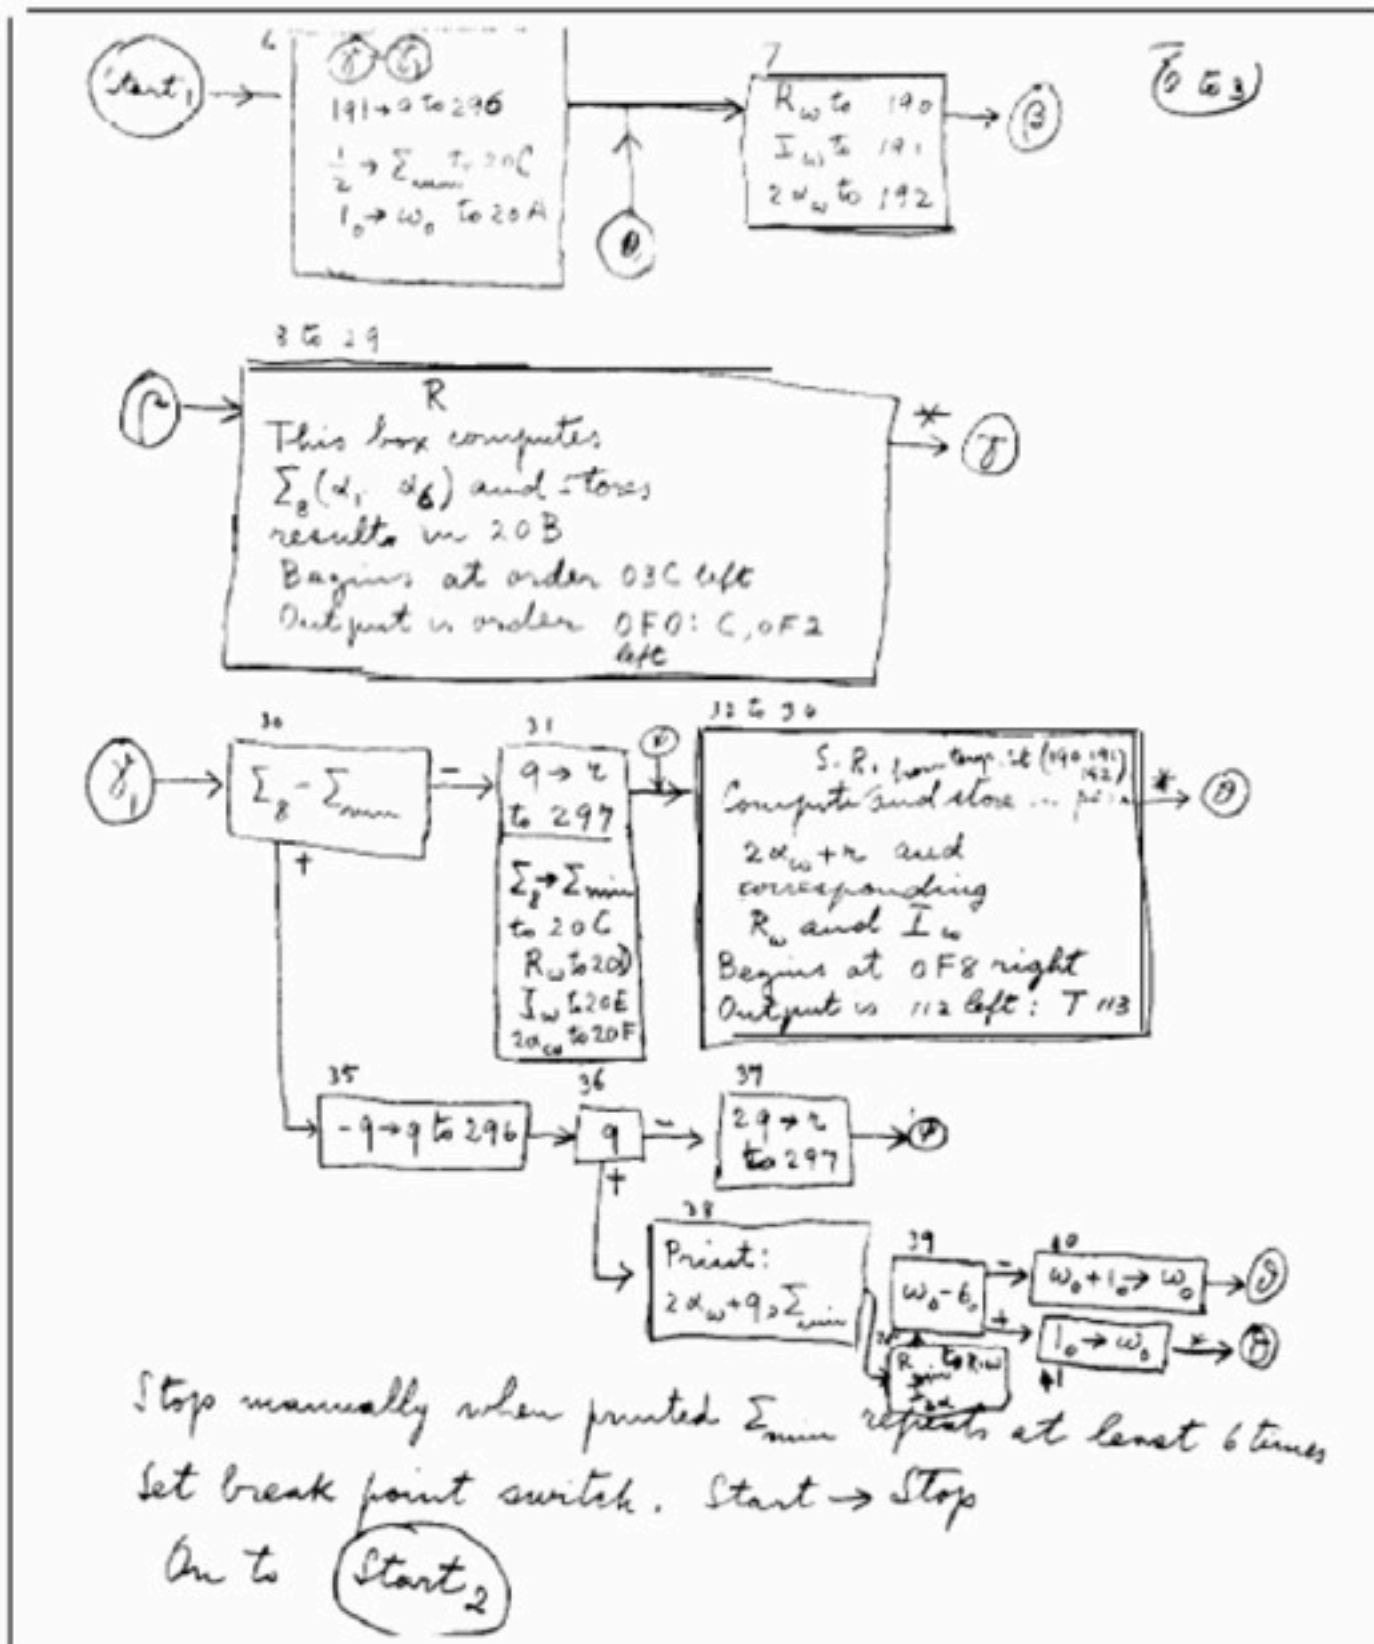 Start₁
6
γ
191→q to 296
½ → Σmin to 20C
1₀ → ω₀ to 20A
θ
7
Rω to 190
Iω to 191
2αω to 192
β
8 to 29
R
This box computes
Σ₈(α₁ α₆) and stores
results in 20B
Begins at order 03C left
Output is order 0F0: C, 0F2
left
*
γ
γ₁
30
Σ₈ - Σmin
-
+
31
q → r
to 297
Σ₈→Σmin
to 20C
Rω to 20D
Iω to 20E
2αω to 20F
32 to 34
S.R. from (190 191
192)
Compute and store ...
2αω + r and
corresponding
Rω and Iω
Begins at 0F8 right
Output is 112 left: T 113
*
θ
35
-q→q to 296
36
q
-
+
37
2q→r
to 297
38
Print:
2αω+q, Σmin
39
ω₀-6₀
-
+
40
ω₀+1₀→ω₀
θ
1₀→ω₀
41
*
θ
Stop manually when printed Σmin repeats at least 6 times
Set break point switch. Start → Stop
On to Start₂